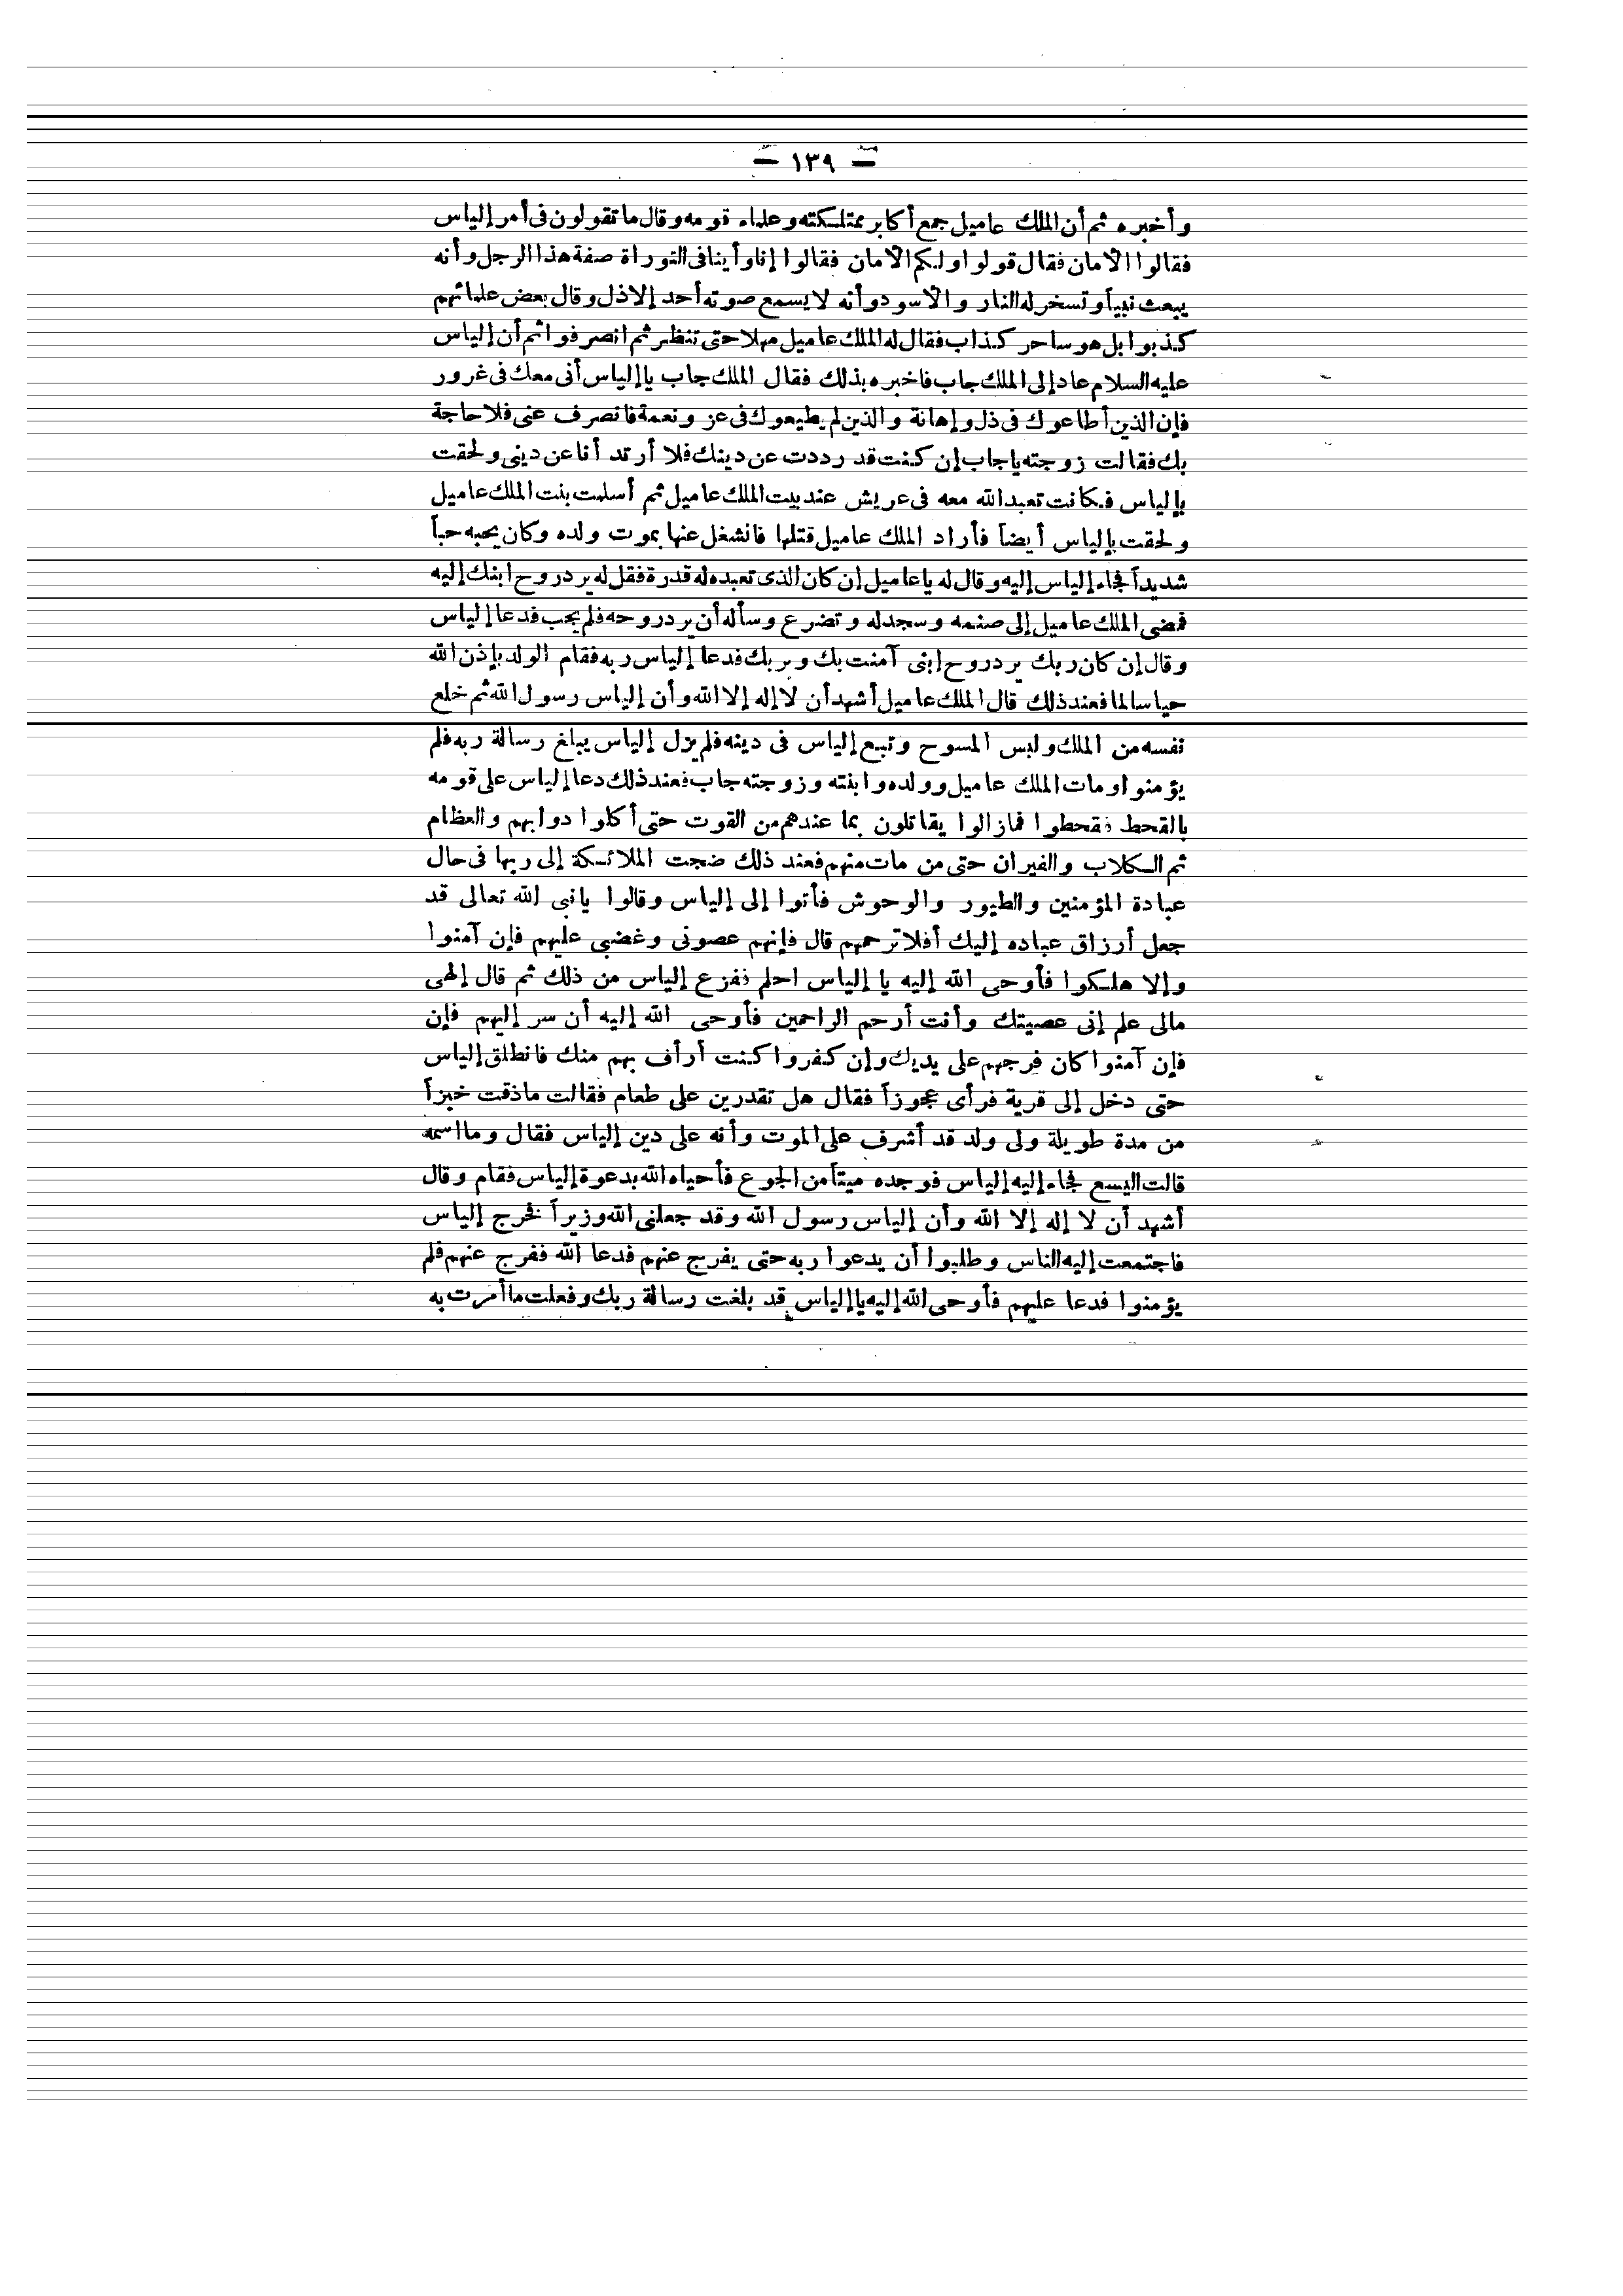 — ١٣٩ —
وأخبره ثم أن الملك عاميل جمع أكابر مملكته وعلماء قومه وقال ما تقولون فى أمر إلياس
فقالوا الأمان فقال قولوا ولكم الأمان فقالوا إنا رأينا فى التوراة صفة هذا الرجل وأنه
يبعث نبياً وتسخر له النار والأسود وأنه لا يسمع صوته أحد إلا ذل وقال بعض علمائهم
كذبوا بل هو ساحر كذاب فقال له الملك عاميل مهلا حتى تنظر ثم انصرفوا ثم أن إلياس
عليه السلام عاد إلى الملك جاب فاخبره بذلك فقال الملك جاب يا إلياس أنى معك فى غرور
فإن الذين أطاعوك فى ذل وإهانة والذين لم يطيعوك فى عز ونعمة فانصرف عنى فلا حاجة
بك فقالت زوجته يا جاب إن كنت قد رددت عن دينك فلا أرتد أنا عن دينى ولحقت
بإلياس فكانت تعبد الله معه فى عريش عند بيت الملك عاميل ثم أسلمت بنت الملك عاميل
ولحقت بإلياس أيضاً فأراد الملك عاميل قتلها فانشغل عنها بموت ولده وكان يحبه حباً
شديداً فجاء إلياس إليه وقال له يا عاميل إن كان الذى تعبده له قدرة فقل له يرد روح ابنك إليه
فمضى الملك عاميل إلى صنمه وسجد له وتضرع وسأله أن يرد روحه فلم يجب فدعا إلياس
وقال إن كان ربك يرد روح إبنى آمنت بك وبربك فدعا إلياس ربه فقام الولد بإذن الله
حيا سالما فعند ذلك قال الملك عاميل أشهد أن لا إله إلا الله وأن إلياس رسول الله ثم خلع
نفسه من الملك ولبس المسوح وتبع إلياس فى دينه فلم يزل إلياس يبلغ رسالة ربه فلم
يؤمنوا ومات الملك عاميل وولده وابنته وزوجته جاب فعند ذلك دعا إلياس على قومه
بالقحط فقحطوا فمازالوا يقاتلون بما عندهم من القوت حتى أكلوا دوابهم والعظام
ثم الكلاب والفيران حتى من مات منهم فعند ذلك ضجت الملائكة إلى ربها فى حال
عبادة المؤمنين والطيور والوحوش فأتوا إلى إلياس وقالوا يا نبى الله تعالى قد
جعل أرزاق عباده إليك أفلا ترحمهم قال فإنهم عصونى وغضبى عليهم فإن آمنوا
وإلا هلكوا فأوحى الله إليه يا إلياس احلم ففزع إلياس من ذلك ثم قال إلهى
مالى علم إنى عصيتك وأنت أرحم الراحمين فأوحى الله إليه أن سر إليهم فإن
فإن آمنوا كان فرجهم على يديك وإن كفروا كنت أرأف بهم منك فانطلق إلياس
حتى دخل إلى قرية فرأى عجوزاً فقال هل تقدرين على طعام فقالت ماذقت خبزاً
من مدة طويلة ولى ولد قد أشرف على الموت وأنه على دين إلياس فقال وما اسمه
قالت اليسع فجاء إليه إلياس فوجده ميتاً من الجوع فأحياه الله بدعوة إلياس فقام وقال
أشهد أن لا إله إلا الله وأن إلياس رسول الله وقد جعلنى الله وزيراً فخرج إلياس
فاجتمعت إليه الناس وطلبوا أن يدعوا ربه حتى يفرج عنهم فدعا الله ففرج عنهم فلم
يؤمنوا فدعا عليهم فأوحى الله إليه يا إلياس قد بلغت رسالة ربك وفعلت ما أمرت به